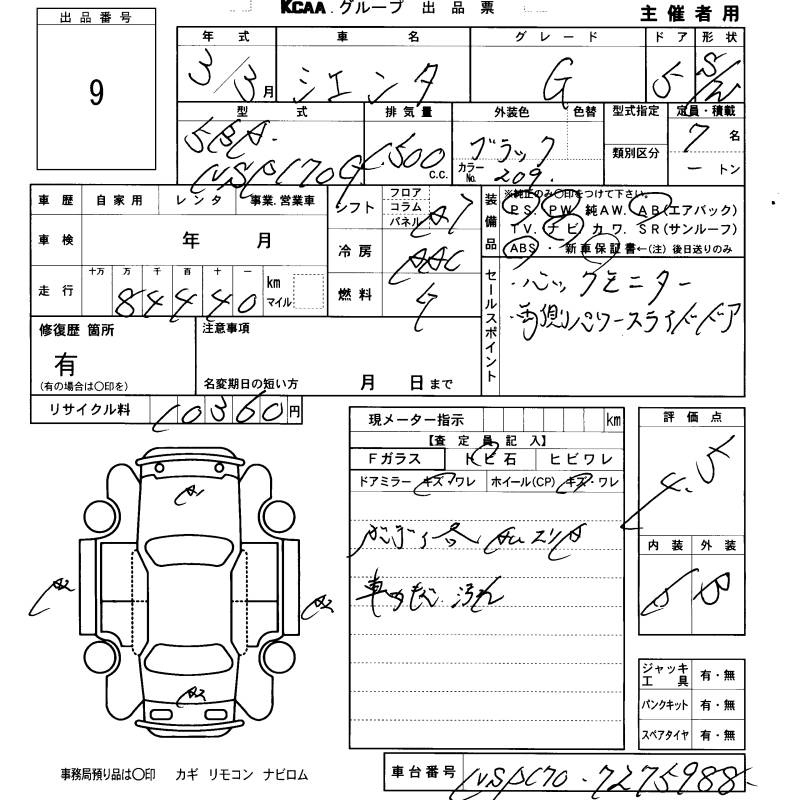 KCAA.グループ 出品票
主催者用
出品番号
9
年式 車名 グレード ドア 形状
3/3月 シエンタ G 5 S/W
型式 排気量 外装色 色替 型式指定 定員・積載
5BA- 1,500 c.c. ブラック 7 名
NSP170G カラーNo. 209 類別区分 ー トン
車歴 自家用 レンタ 事業.営業車
シフト フロア コラム パネル AT
装備品 ※純正のみ○印をつけて下さい。
PS. PW. 純AW. AB(エアバック)
TV. ナビ カワ. SR(サンルーフ)
ABS・ 新車保証書←(注) 後日送りのみ
車検 年 月
冷房 AAC
走行 十万 万 千 百 十 一 km マイル
84440
燃料 ガ
セールスポイント
・バックモニター
・両側パワースライドドア
修復歴 箇所
有
(有の場合は○印を)
注意事項
名変期日の短い方 月 日まで
リサイクル料 10360円
現メーター指示 km
【査定員記入】
Fガラス トビ石 ヒビワレ
ドアミラー キズ・ワレ ホイール(CP) キズ・ワレ
ボディ各 スリ
車内 汚れ
評価点
4.5
内装 外装
B B
A1
A2
A2
A2
ジャッキ工具 有・無
パンクキット 有・無
スペアタイヤ 有・無
事務局預り品は○印 カギ リモコン ナビロム
車台番号 NSP170-7275988